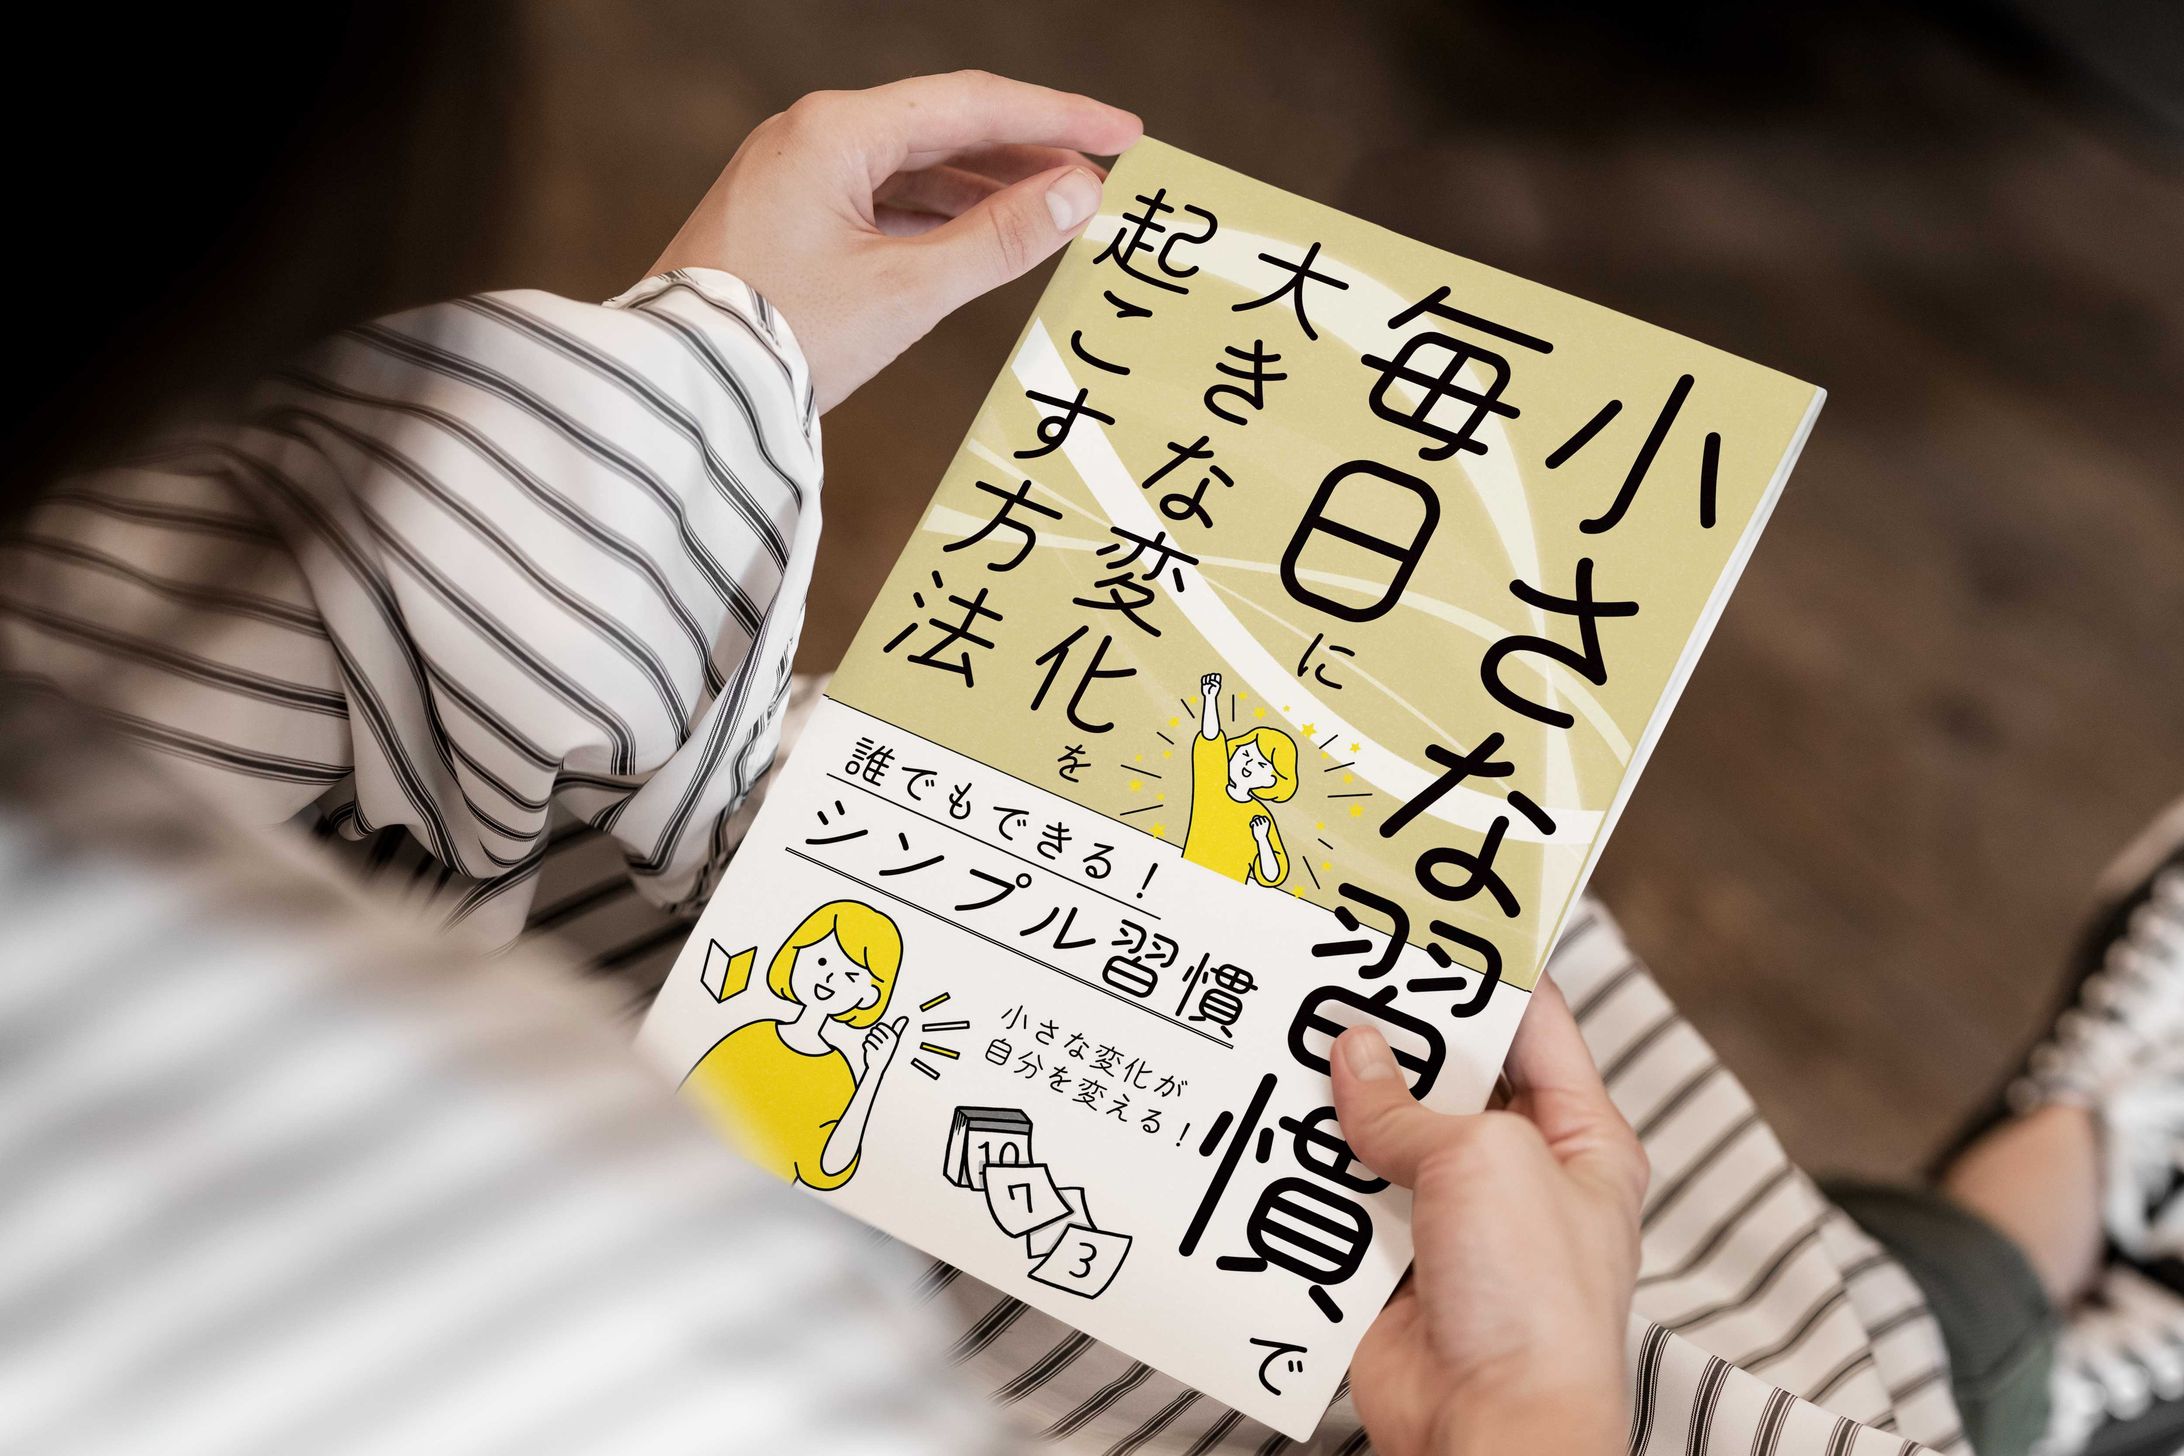 小さな習慣で
毎日に
大きな変化を
起こす方法
誰でもできる！
シンプル習慣
小さな変化が
自分を変える！
10
7
3